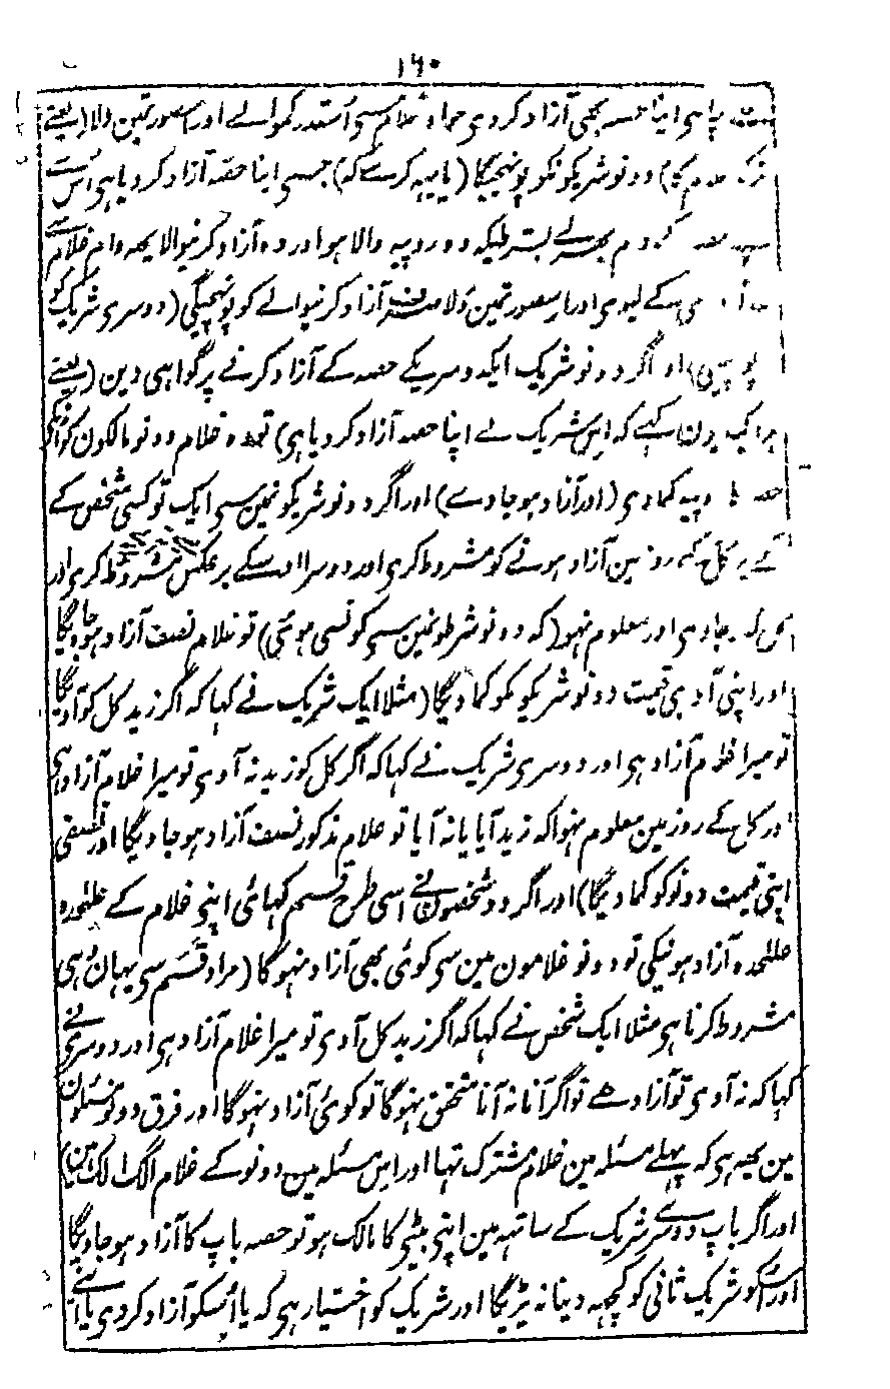 ۱۶۰
پاہی اپنا حصہ بھی آزاد کردی غلام سی استدر کموالے اور اسصورتمین ولا (یعنے
ترکہ غلام کا) دونو شریکونکو پونہچیگا (یا یہہ کرے کہ) جسی اپنا حصہ آزاد کردیا ہی اُس سے
حصہ کے دام بھرلے بشرطیکہ وہ روپیہ والا ہو اور وہ آزاد کرنیوالا یہہ دام غلام سے
کے لیوی اور اسصورتمین ولا صرف آزاد کرنیوالے کو پونہچیگی (دوسری شریک کو
اور اگر دونو شریک ایک دوسریکے حصہ کے آزاد کرنے پر گواہی دین (یعنے
ہر ایک یون کہے کہ اِس شریک نے اپنا حصہ آزاد کردیا ہی) تو وہ غلام دونو مالکون کو اُنکی
حصہ کا روپیہ کمادی (اور آزاد ہوجاوے) اور اگر دونو شریکونمین سی ایک تو کسی شخص کے
کے روز مین آزاد ہونے کو مشروط کری اور دوسرا اسکے برعکس مشروط کری اور
جاوی اور معلوم نہو (کہ دونو شرطونمین سی کونسی ہوئی) تو غلام نصف آزاد ہوجاویگا
اور اپنی آدہی قیمت دونو شریکونکو کمادیگا (مثلا ایک شریک نے کہا کہ اگر زید کل کو آویگا
تو میرا غلام آزاد ہی اور دوسری شریک نے کہا کہ اگر کل کو زید نہ آوی تو میرا غلام آزاد ہی
اور کل کے روز مین معلوم نہوا کہ زید آیا یا نہ آیا تو غلام مذکور نصف آزاد ہوجاویگا اور نصفی
اپنی قیمت دونوکو کمادیگا) اور اگر دو شخصون نے اسی طرح قسم کہائی اپنی غلام کے علیحدہ
علیحدہ آزاد ہونیکی تو دونو غلامون مین سی کوئی بھی آزاد نہوگا (مراد قسم سی یہان وہی
مشروط کرنا ہی مثلا ایک شخص نے کہا کہ اگر زید کل آوی تو میرا غلام آزاد ہی اور دوسری نے
کہا کہ نہ آوی تو آزاد ہے تو اگر آنا نہ آنا متحقق نہوگا تو کوئی آزاد نہوگا اور فرق دونو مسئلون
مین یہہ ہی کہ پہلے مسئلہ مین غلام مشترک تہا اور اِس مسئلہ مین دونو کے غلام الگ الگ ہین)
اور اگر باپ دوسرے شریک کے ساتہہ مین اپنی بیٹی کا مالک ہو تو حصہ باپ کا آزاد ہوجاویگا
اور اُسکو شریک ثانی کو کچہہ دینا نہ پڑیگا اور شریک کو اختیار ہی کہ یا اُسکو آزاد کردی یا اپنے